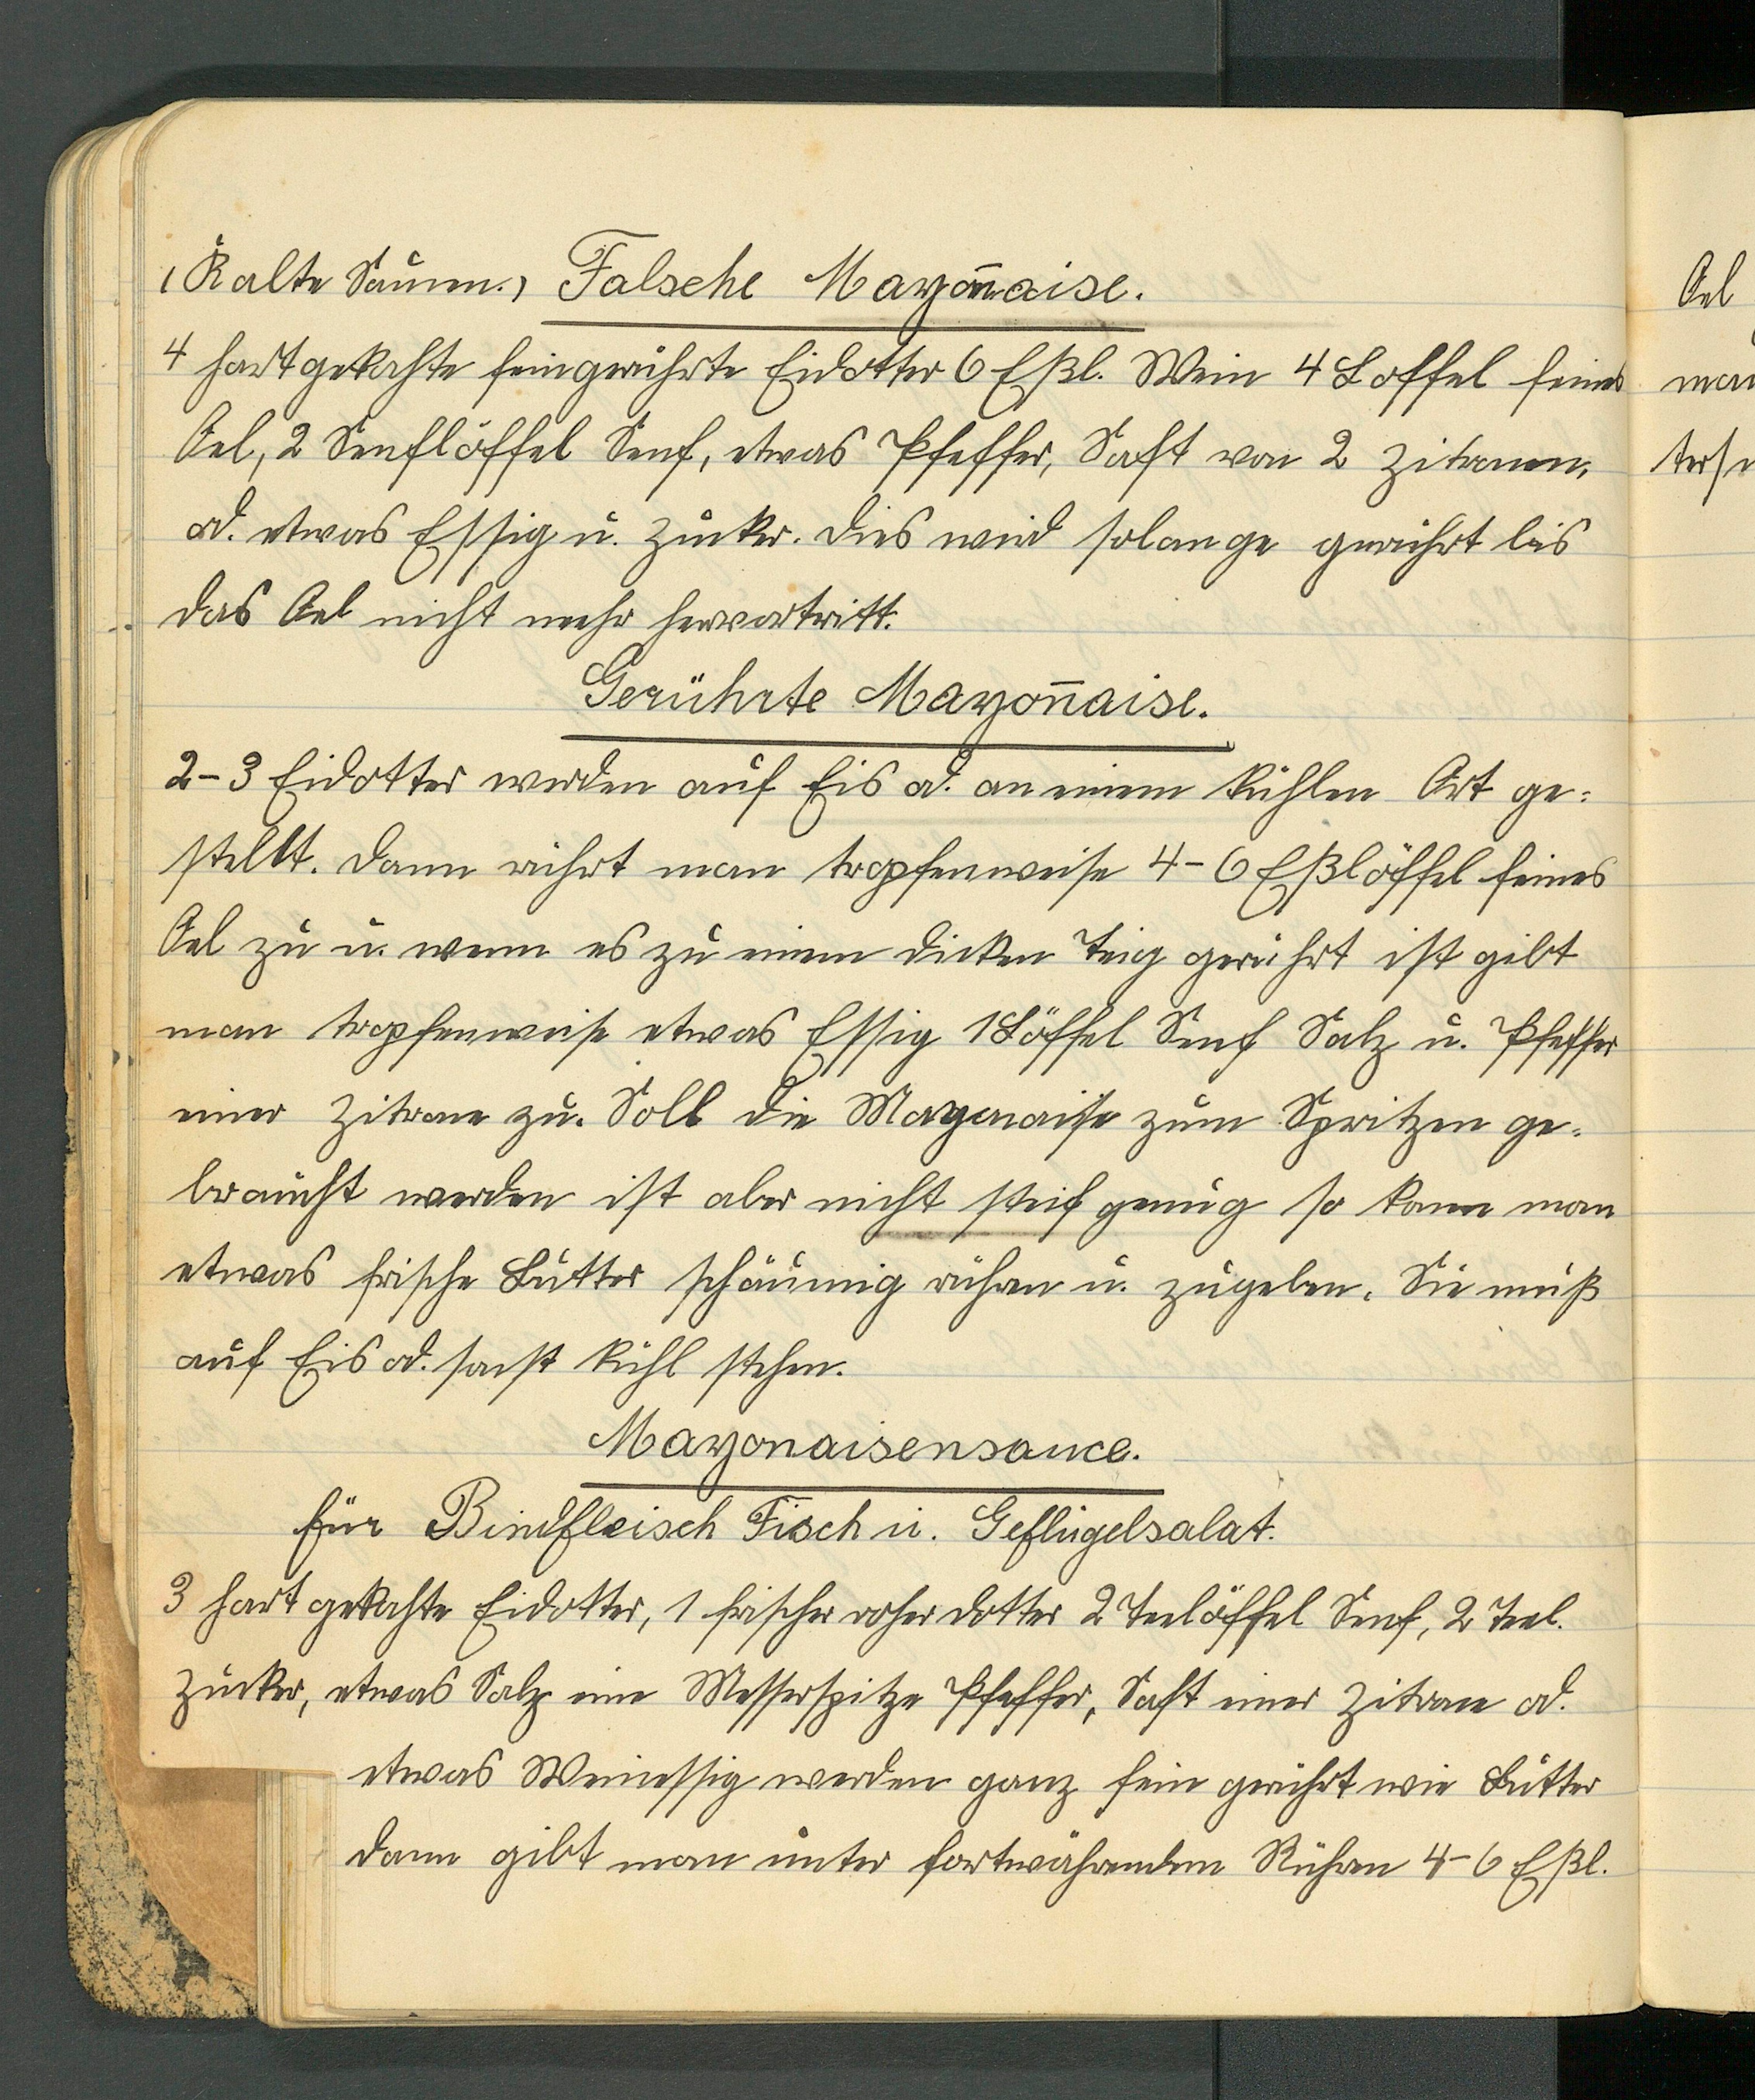 (Kalte Saucen.) Falsche Mayon̄aise.
4 hartgekochte feingerührte Eidotter 6 Eßl. Wein 4 Loffel feines
Oel, 2 Senflöffel Senf, etwas Pfeffer, Saft von 2 Zitronen,
od. etwas Essig u. Zucker. Dies wird solange gerührt bis
das Oel nicht mehr hervortritt.
Gerührte Mayon̄aise.
2-3 Eidotter werden auf Eis od. an einem kühlen Ort ge=
stellt. Dann rührt man tropfenweise 4-6 Eßlöffel feines
Oel zu u. wenn es zu einem dicken Teig gerührt ist gibt
man tropfenweise etwas Essig 1 Löffel Senf Salz u. Pfeffer
einer Zitrone zu. Soll die Mayonaise zum Spritzen ge=
braucht werden ist aber nicht steif genug so kann man
etwas frische Butter schäumig rühren u. zugeben. Sie muß
auf Eis od. sonst kühl stehen.
Mayonaisensauce.
für Rindfleisch Fisch u. Geflügelsalat.
3 hartgekochte Eidotter, 1 frischer roher Dotter 2 Teelöffel Senf, 2 Teel.
Zucker, etwas Salz eine Messerspitze Pfeffer, Saft einer Zitrone od.
etwas Weinessig werden ganz fein gerührt wie Butter
dann gibt man unter fortwährendem Rühren 4-6 Eßl.
Oel